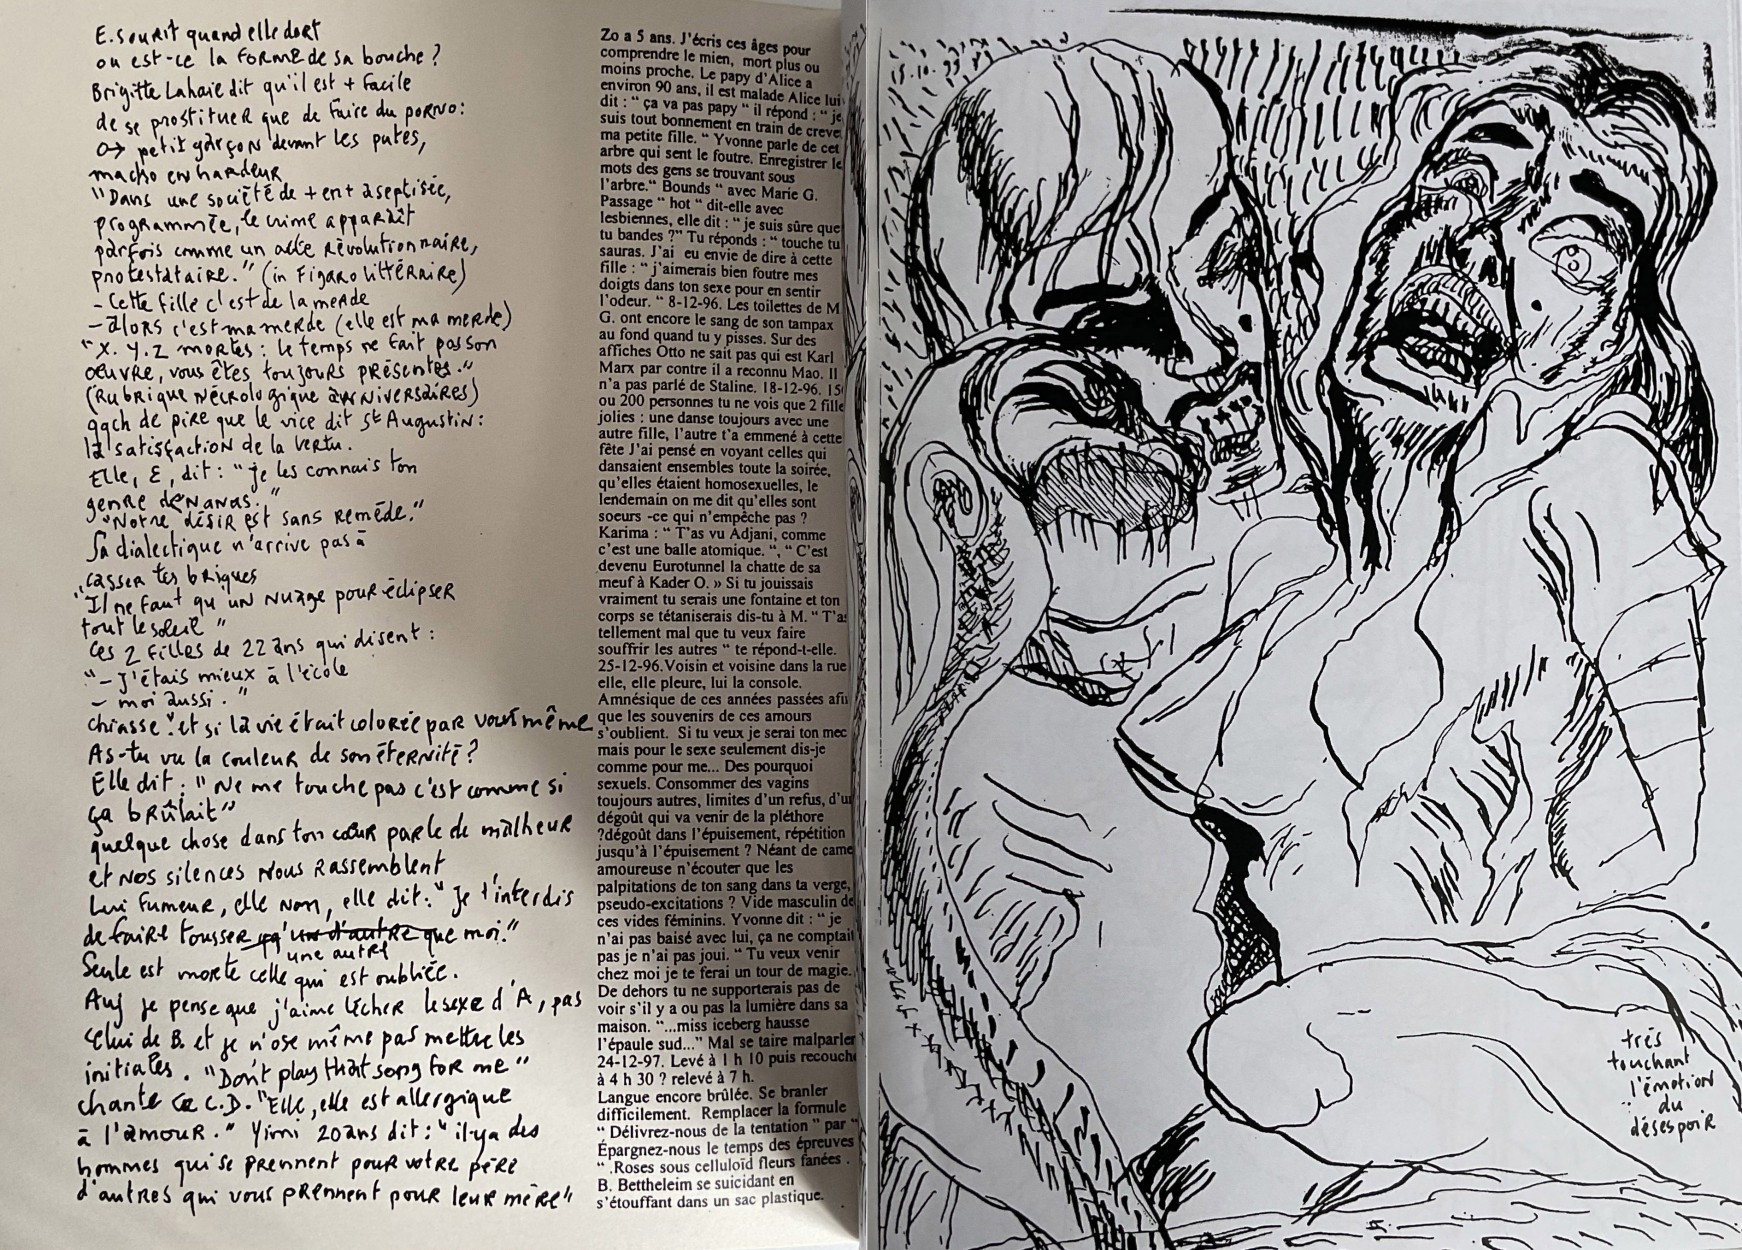 E. sourit quand elle dort
ou est-ce la forme de sa bouche ?
Brigitte Lahaie dit qu'il est + facile
de se prostituer que de faire du porno :
petit garçon devant les putes,
macho en hardeur
"Dans une société de + en + aseptisée,
programmée, le crime apparaît
parfois comme un acte révolutionnaire,
protestataire." (in Figaro littéraire)
- Cette fille c'est de la merde
- alors c'est ma merde (elle est ma merde)
"X. Y. Z mortes : le temps ne fait pas son
œuvre, vous êtes toujours présentes."
(Rubrique nécrologique anniversaires)
qqch de pire que le vice dit St Augustin :
la satisfaction de la vertu.
Elle, E, dit : "je les connais ton
genre de nanas."
"Notre désir est sans remède."
Sa dialectique n'arrive pas à
casser tes briques
"Il ne faut qu'un nuage pour éclipser
tout le soleil"
Ces 2 filles de 22 ans qui disent :
"- J'étais mieux à l'école
- moi aussi."
chiasse : et si la vie était colorée par vous même
As-tu vu la couleur de son éternité ?
Elle dit : "Ne me touche pas c'est comme si
ça brûlait"
quelque chose dans ton cœur parle de malheur
et nos silences nous rassemblent
Lui fumeur, elle non, elle dit : "Je t'interdis
de faire tousser qq'un d'autre que moi."
une autre
Seule est morte celle qui est oubliée.
je pense que j'aime lécher le sexe d'A, pas
celui de B. et je n'ose même pas mettre les
initiales. "Don't play that song for me"
chante ce C.D. "Elle, elle est allergique
à l'amour." Yimi 20 ans dit : "il y a des
hommes qui se prennent pour votre père
d'autres qui vous prennent pour leur mère"
Zo a 5 ans. J'écris ces âges pour
comprendre le mien, mort plus ou
moins proche. Le papy d'Alice a
environ 90 ans, il est malade Alice lui
dit : " ça va pas papy " il répond : " je
suis tout bonnement en train de creve
ma petite fille. " Yvonne parle de cet
arbre qui sent le foutre. Enregistrer le
mots des gens se trouvant sous
l'arbre." Bounds " avec Marie G.
Passage " hot " dit-elle avec
lesbiennes, elle dit : " je suis sûre que
tu bandes ?" Tu réponds : " touche tu
sauras. J'ai eu envie de dire à cette
fille : " j'aimerais bien foutre mes
doigts dans ton sexe pour en sentir
l'odeur. " 8-12-96. Les toilettes de M
G. ont encore le sang de son tampax
au fond quand tu y pisses. Sur des
affiches Otto ne sait pas qui est Karl
Marx par contre il a reconnu Mao. Il
n'a pas parlé de Staline. 18-12-96. 15
ou 200 personnes tu ne vois que 2 fille
jolies : une danse toujours avec une
autre fille, l'autre t'a emmené à cette
fête J'ai pensé en voyant celles qui
dansaient ensembles toute la soirée,
qu'elles étaient homosexuelles, le
lendemain on me dit qu'elles sont
soeurs -ce qui n'empêche pas ?
Karima : " T'as vu Adjani, comme
c'est une balle atomique. ", " C'est
devenu Eurotunnel la chatte de sa
meuf à Kader O. » Si tu jouissais
vraiment tu serais une fontaine et ton
corps se tétaniserais dis-tu à M. " T'as
tellement mal que tu veux faire
souffrir les autres " te répond-t-elle.
25-12-96.Voisin et voisine dans la rue
elle, elle pleure, lui la console.
Amnésique de ces années passées afin
que les souvenirs de ces amours
s'oublient. Si tu veux je serai ton mec
mais pour le sexe seulement dis-je
comme pour me... Des pourquoi
sexuels. Consommer des vagins
toujours autres, limites d'un refus, d'u
dégoût qui va venir de la pléthore
?dégoût dans l'épuisement, répétition
jusqu'à l'épuisement ? Néant de came
amoureuse n'écouter que les
palpitations de ton sang dans ta verge,
pseudo-excitations ? Vide masculin de
ces vides féminins. Yvonne dit : " je
n'ai pas baisé avec lui, ça ne comptait
pas je n'ai pas joui. " Tu veux venir
chez moi je te ferai un tour de magie.
De dehors tu ne supporterais pas de
voir s'il y a ou pas la lumière dans sa
maison. "...miss iceberg hausse
l'épaule sud..." Mal se taire malparler
24-12-97. Levé à 1 h 10 puis recouche
à 4 h 30 ? relevé à 7 h.
Langue encore brûlée. Se branler
difficilement. Remplacer la formule
" Délivrez-nous de la tentation " par "
Épargnez-nous le temps des épreuves
" .Roses sous celluloïd fleurs fanées .
B. Bettheleim se suicidant en
s'étouffant dans un sac plastique.
très
touchant
l'émotion
du
désespoir